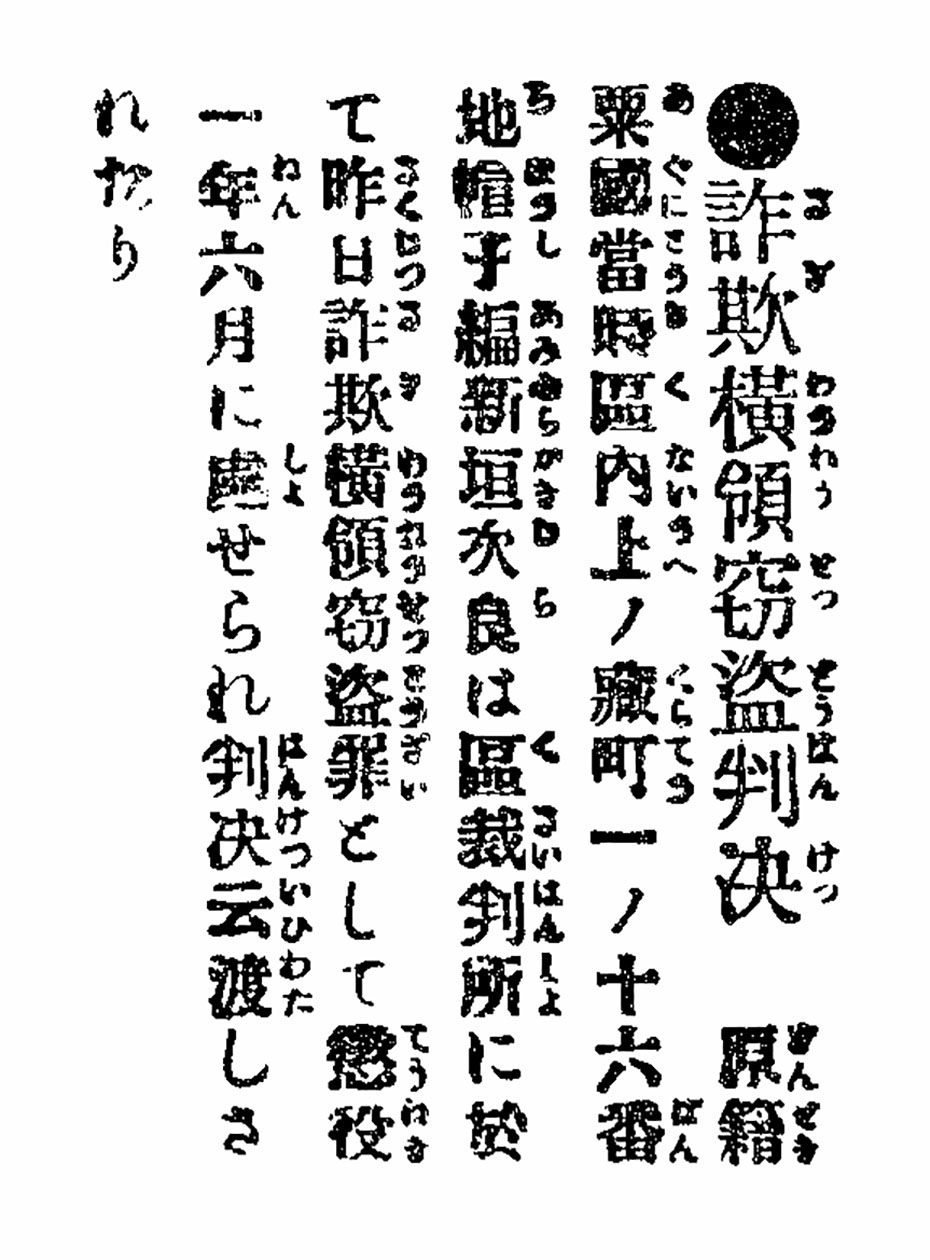 ●詐欺横領窃盗判决　原籍
粟國當時區内上ノ藏町一ノ十六番
地帽子編新垣次良は區裁判所に於
て昨日詐欺横領窃盗罪として懲役
一年六月に處せられ判决云渡しさ
れたり